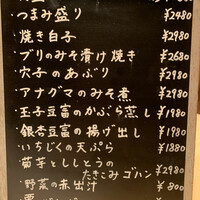 ・つまみ盛り ¥2480
・焼き白子 ¥2980
・ブリのみそ漬け焼き ¥2680
・穴子のあぶり ¥2980
・アナグマのみそ煮 ¥2980
・玉子豆富のかぶら蒸し ¥1980
・銀杏豆富の揚げ出し ¥1980
・いちじくの天ぷら ¥1880
・菊芋とししとうの
たきこみゴハン ¥2980
・野菜の赤出汁 ¥800